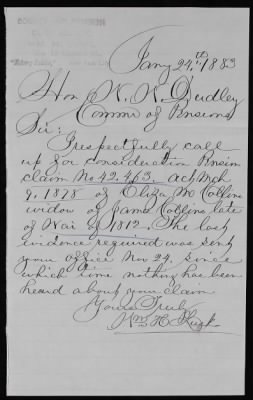 Jany 24th 1883
Hon W. W. Dudley
Commr of Pensions
Sir:
I respectfully call
up for consideration Pension
claim No 42.463. act Mch
9. 1878 of Eliza M Collins
widow of James Collins late
of War of 1812. The last
evidence required was sent
your office Nov 29. since
which time nothing has been
heard about your claim
Yours Truly
Wm H